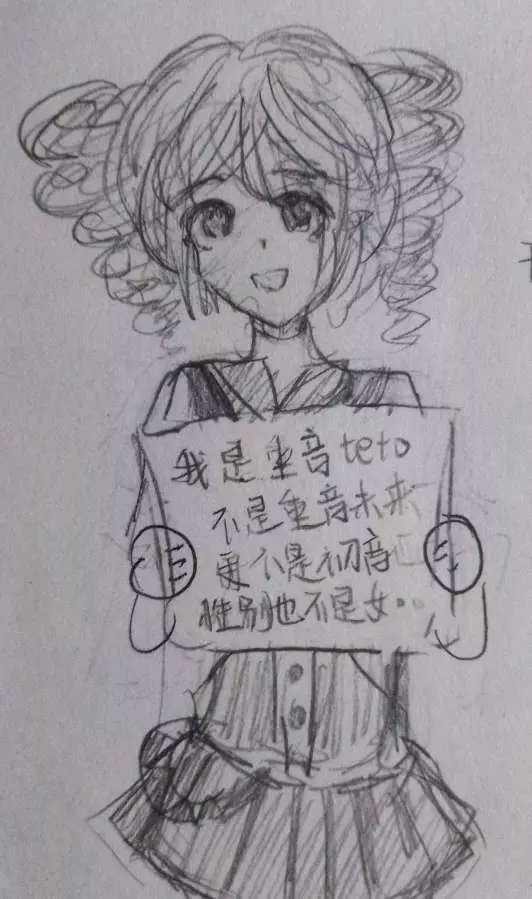 我是重音teto
不是重音未来
更不是初音
性别也不是女…